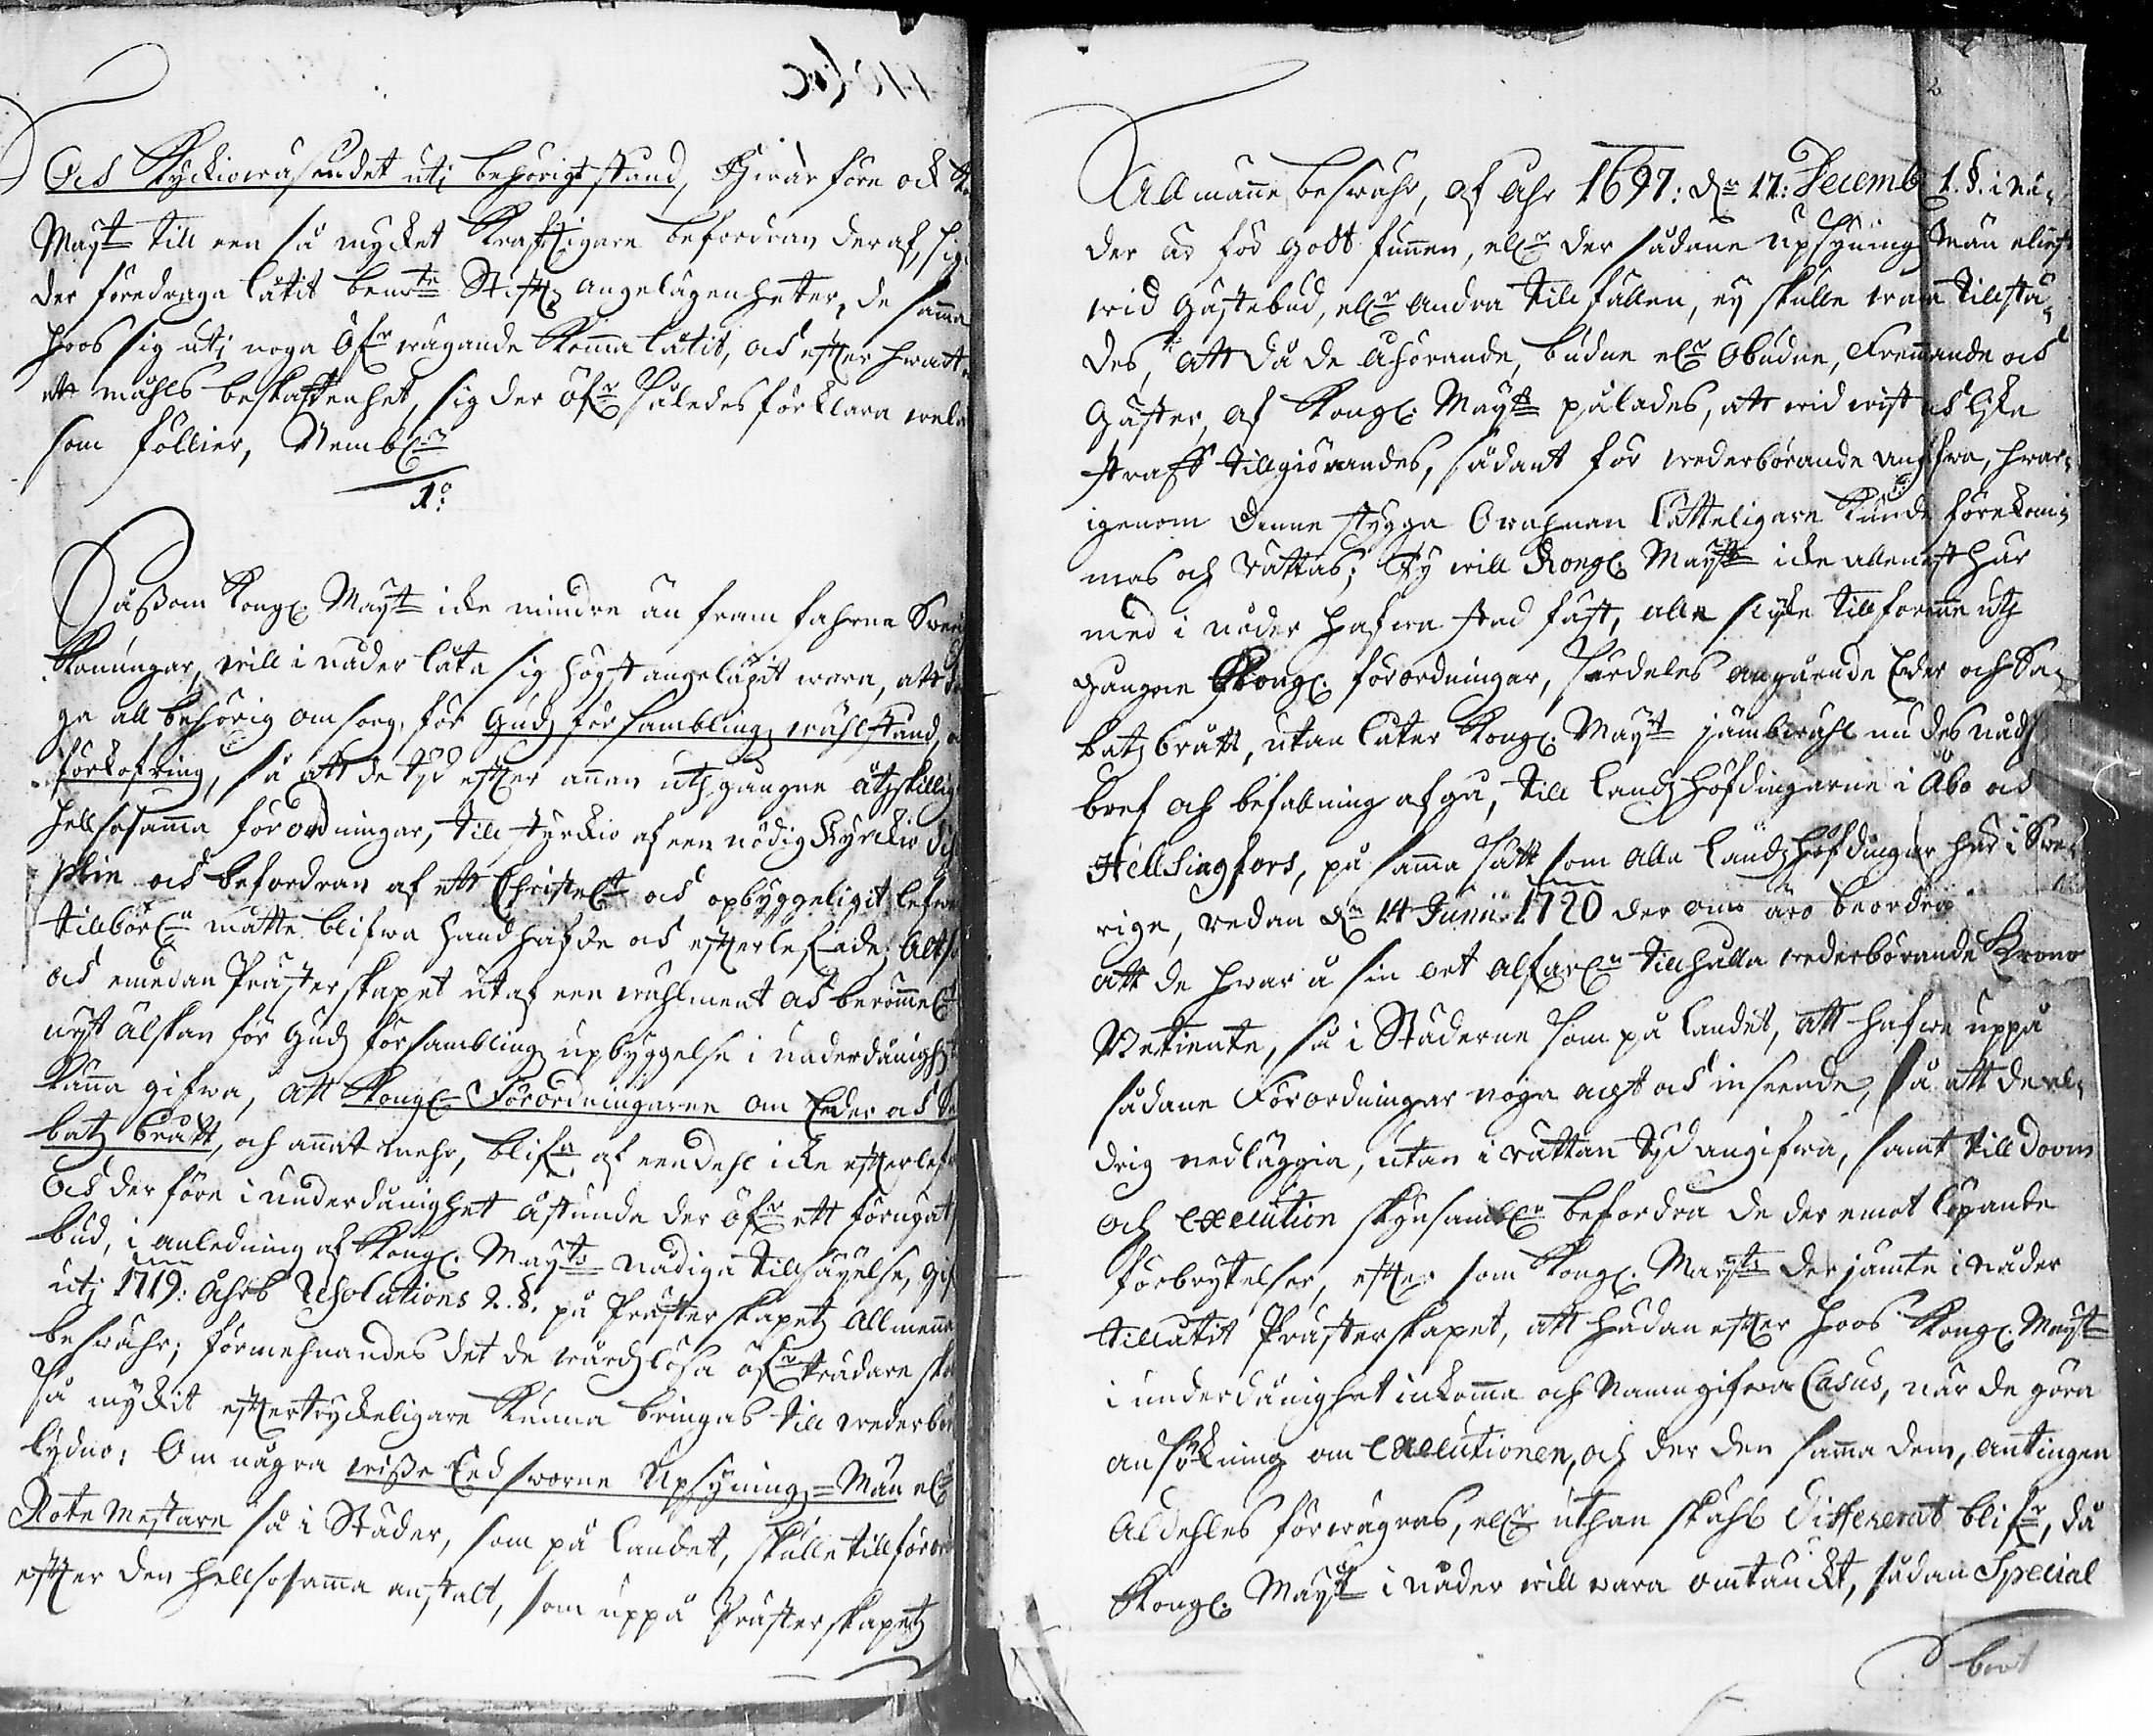 och Kyckiowäsendet uti behörigt stånd, Hwar före ock K.
Maytt till een så mycket krafftigare befordran deraf, sig
der föredraga låtit bemte Stiftz angelägenheter, de samma
hoos sig uti noga öfr wägande komma låtit, och efter hwart
ett måhls beskaffenhet, sig der öfr således förklara welat
som föllier, Nembl:n
1o
Såssom Kongl. Maytt icke mindre än fram fahrna Swea
Konungar, will i nåder låta sig högst angelägit wara, att dra
ga all behörig omsorg, för Gudz församblingz wählstånd, o
förkofring, så att de tyd efter annan uthgångne åtskillig
hellsosamma förordningar, till styrckio af een nödig Kyrckio disci
plin och befordran af ett Christel:t och opbyggeligit lefwer
tillbörl:n måtte blifwa handhafde och efterlefwade; Altså
och emedan Prästerskapet utaf een wählment och berömmel:t
nijt älskan för Gudz församblingz upbyggelse i underdånighet
känna gifwa, att Kongl. Förordningarne om Eeder och Sab
batz brått, och annat mehr, blifa af eendehl icke efterlefde
och der före i underdånighet åstunda der öfr ett förnyat
bud, i anledning af Kongl. Mayts nådiga tillsäyelse, gif
uti 1719: åhrs Resolutions 2. §. på Prästerskapetz Allmenna
beswähr; förmehnandes det de wårdzlösa öfrträdare sko
så myckit eftertryckeligare kunna bringas till wederbör
lydno; Om några wisse Eed sworne Upsynings-Män elr
Rote Mestare så i Städer, som på Landet, skulle tillförord
efter den hellsosamma anstalt, som uppå Prästerskapetz
Allmänne beswähr, af åhr 1697: dn 17: Decemb 1. §. i nå-
der är för godt funnen, elr der sådane upsynings Män eliest
wid Gästebud, elr andra tillfällen, ey skulle wara tillstä-
des, att då de åhörande, budne elr obudne, Fremmande och
Gäster, af Kongl. Maytt pålades, att wid wist och lika
straff tillgiörandes, sådant för wederbörande angifwa, hwar-
igenom denne stygga Owahnan lätteligare kunde förekom-
mas och rättas; Ty will Kongl. Maytt icke allenast här
med i nåder hafwa stad fäst, alla slyke tillförenne uth
gångne Kongl. förordningar, särdeles angående Eder och Sab-
batzbrått, utan låter Kongl. Maytt jämbwähl nu des nådg
bref och befalning afgå, till Landzhöfdingarne i Åbo och
Hellsingfors, på samma sätt som alla Landzhöfdingar här i Swe-
rige, redan dn 14 Junii 1720 der om äro beordra
att de hwar å sin ort alfarl:n tillhålla wederbörande Krono
Betiente, så i Städerne som på Landet, att hafwa uppå
sådane Förordningar noga acht och inseende, så att de al-
drig nedläggia, utan i rättan tyd angifwa, samt till doom
och execution skyndsambl:n befordra de der emot löpande
förbrytelser, efter som Kongl. Maytt der jämte i nåder
tillåtit Prästerskapet, att hädan efter hoos Kongl. Maytt
i underdånighet inkomma och Namngifwa Casus, när de göra
ansökning om executionen, och der den samma dem, antingen
aldehles förwägras, elr uthan skähl differerat blifr, då
Kongl. Maytt i nåder will wara omtänckt, sådan Special
brot